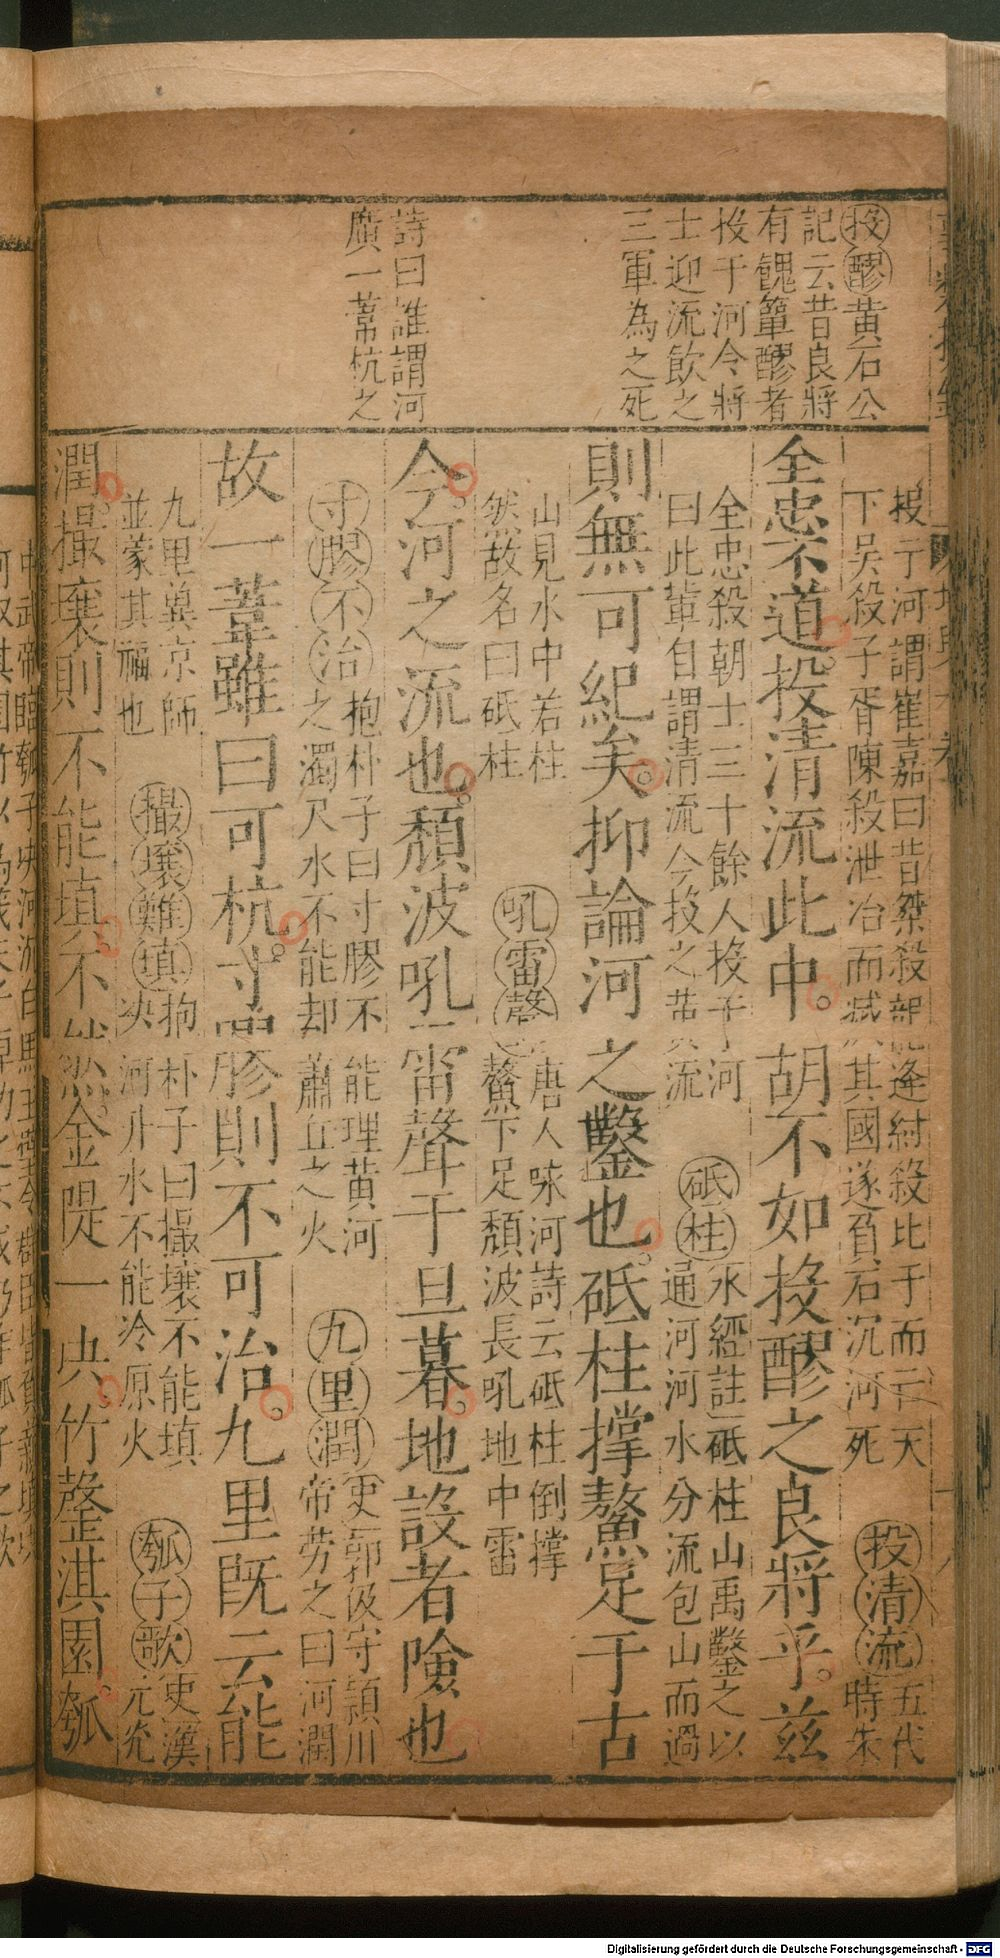 投醪黄石公
記云昔良將
有餽簞醪者
投于河令將
士迎流飲之
三軍為之死
詩曰誰謂河
廣一葦杭之
投于河謂崔嘉曰昔桀殺龍逢紂殺比干而亡天
下吴殺子胥陳殺泄冶而滅其國遂負石沉河死
投清流五代
時朱
全忠不道投清流此中胡不如投醪之良將乎兹
全忠殺朝士三十餘人投于河
曰此軰自謂清流今投之黄流
砥柱水經註砥柱山禹鑿之以
通河河水分流包山而過
則無可紀矣抑論河之鑿也砥柱撑鰲足于古
山見水中若柱
然故名曰砥柱
吼雷聲唐人咏河詩云砥柱倒撑
鰲下足頹波長吼地中雷
今河之流也頹波吼雷聲于旦暮地設者險也
寸膠不治抱朴子曰寸膠不能理黄河
之濁尺水不能却蕭丘之火
九里潤史郭伋守潁川
帝劳之曰河潤
故一葦雖曰可杭寸膠則不可治九里既云能
九里兾京師
並蒙其福也
撮壤難填抱朴子曰撮壤不能填
决河升水不能冷原火
瓠子歌史漢
元光
潤撮壤則不能填不然金隄一决竹罄淇園瓠
Digitalisierung gefördert durch die Deutsche Forschungsgemeinschaft - DFG